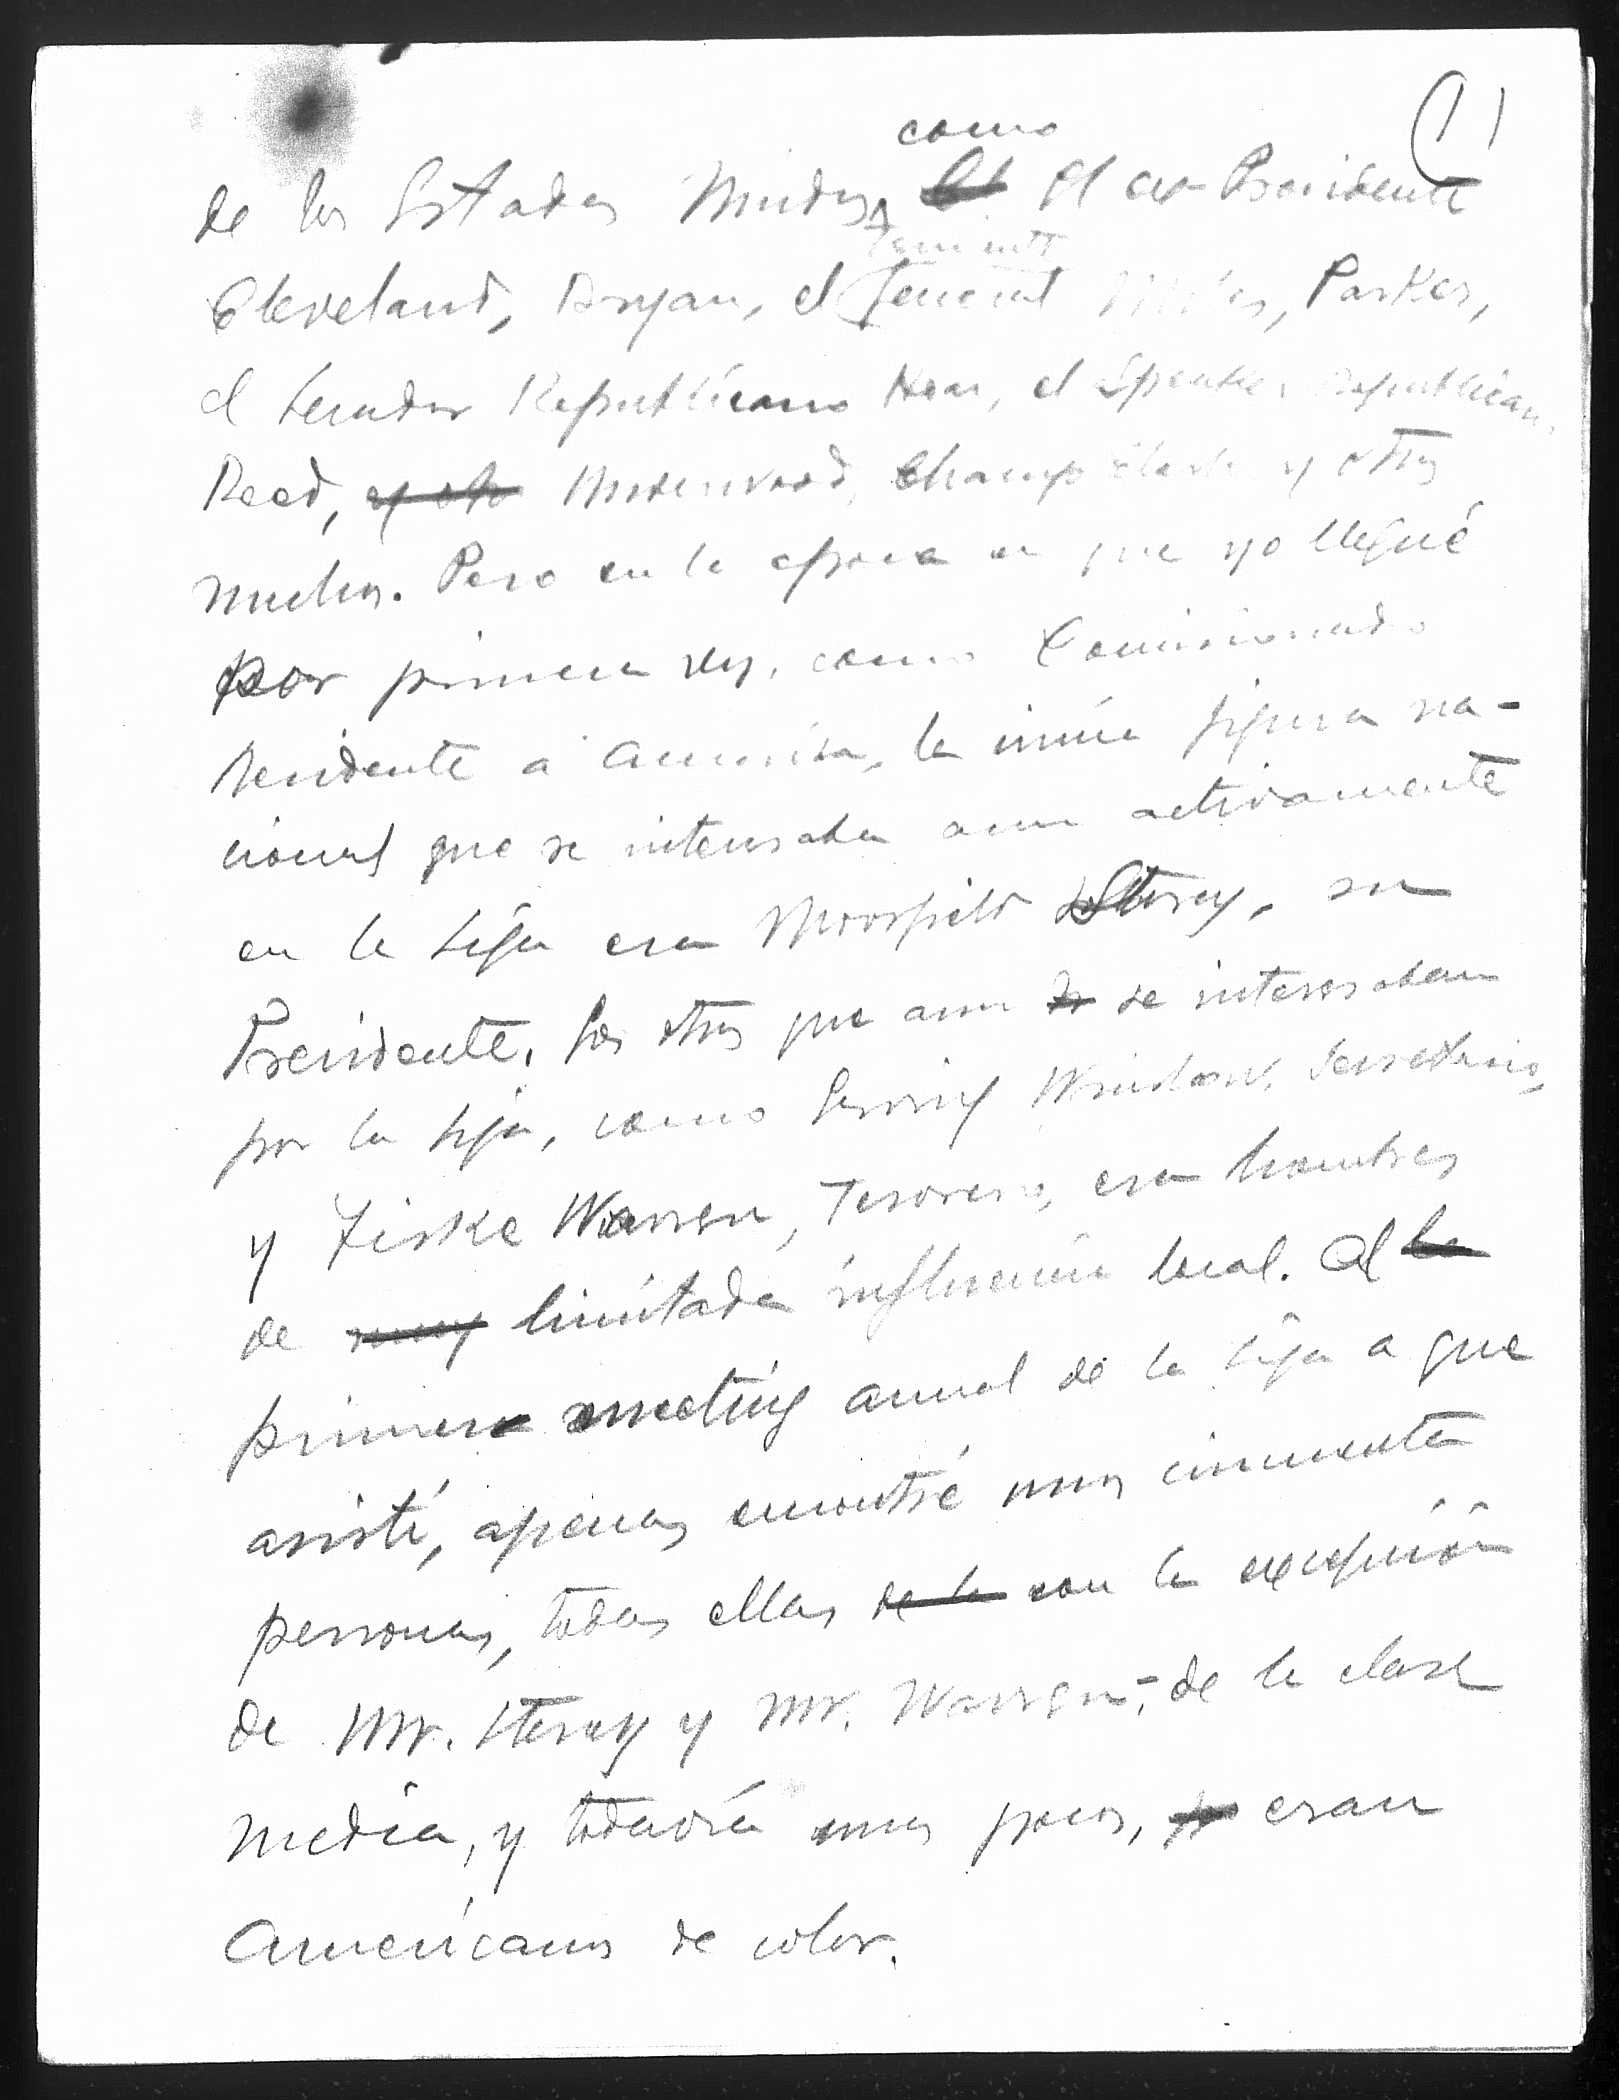 11
como
de los Estados Unidos, el ex-Presidente
Teniente
Cleveland, Bryan, el General Miles, Parker,
el Senador Republicano Hoar, el Speaker Republicano
Reed, y otro Underwood, Champ Clark y otros
muchos. Pero en la epoca en que yo llegué
por primera vez, como Comisionado
Residente a America, la única figura na-
cional que se interesaba aun activamente
en la Liga era Moorfield Storey, su
Presidente. Los otros que aun se interesaban
por la Liga, como Erving Winslow, Secretario,
y Fiske Warren, Tesorero, eran hombres
de muy limitada influencia local. Al la
primera meeting annual de la Liga a que
asistí, apenas encontré unos cincuenta
personas, todas ellas de la con la excepción
de Mr. Storey y Mr. Warren- de la clase
media, y todavía unos pocos, eran
Americanos de color.